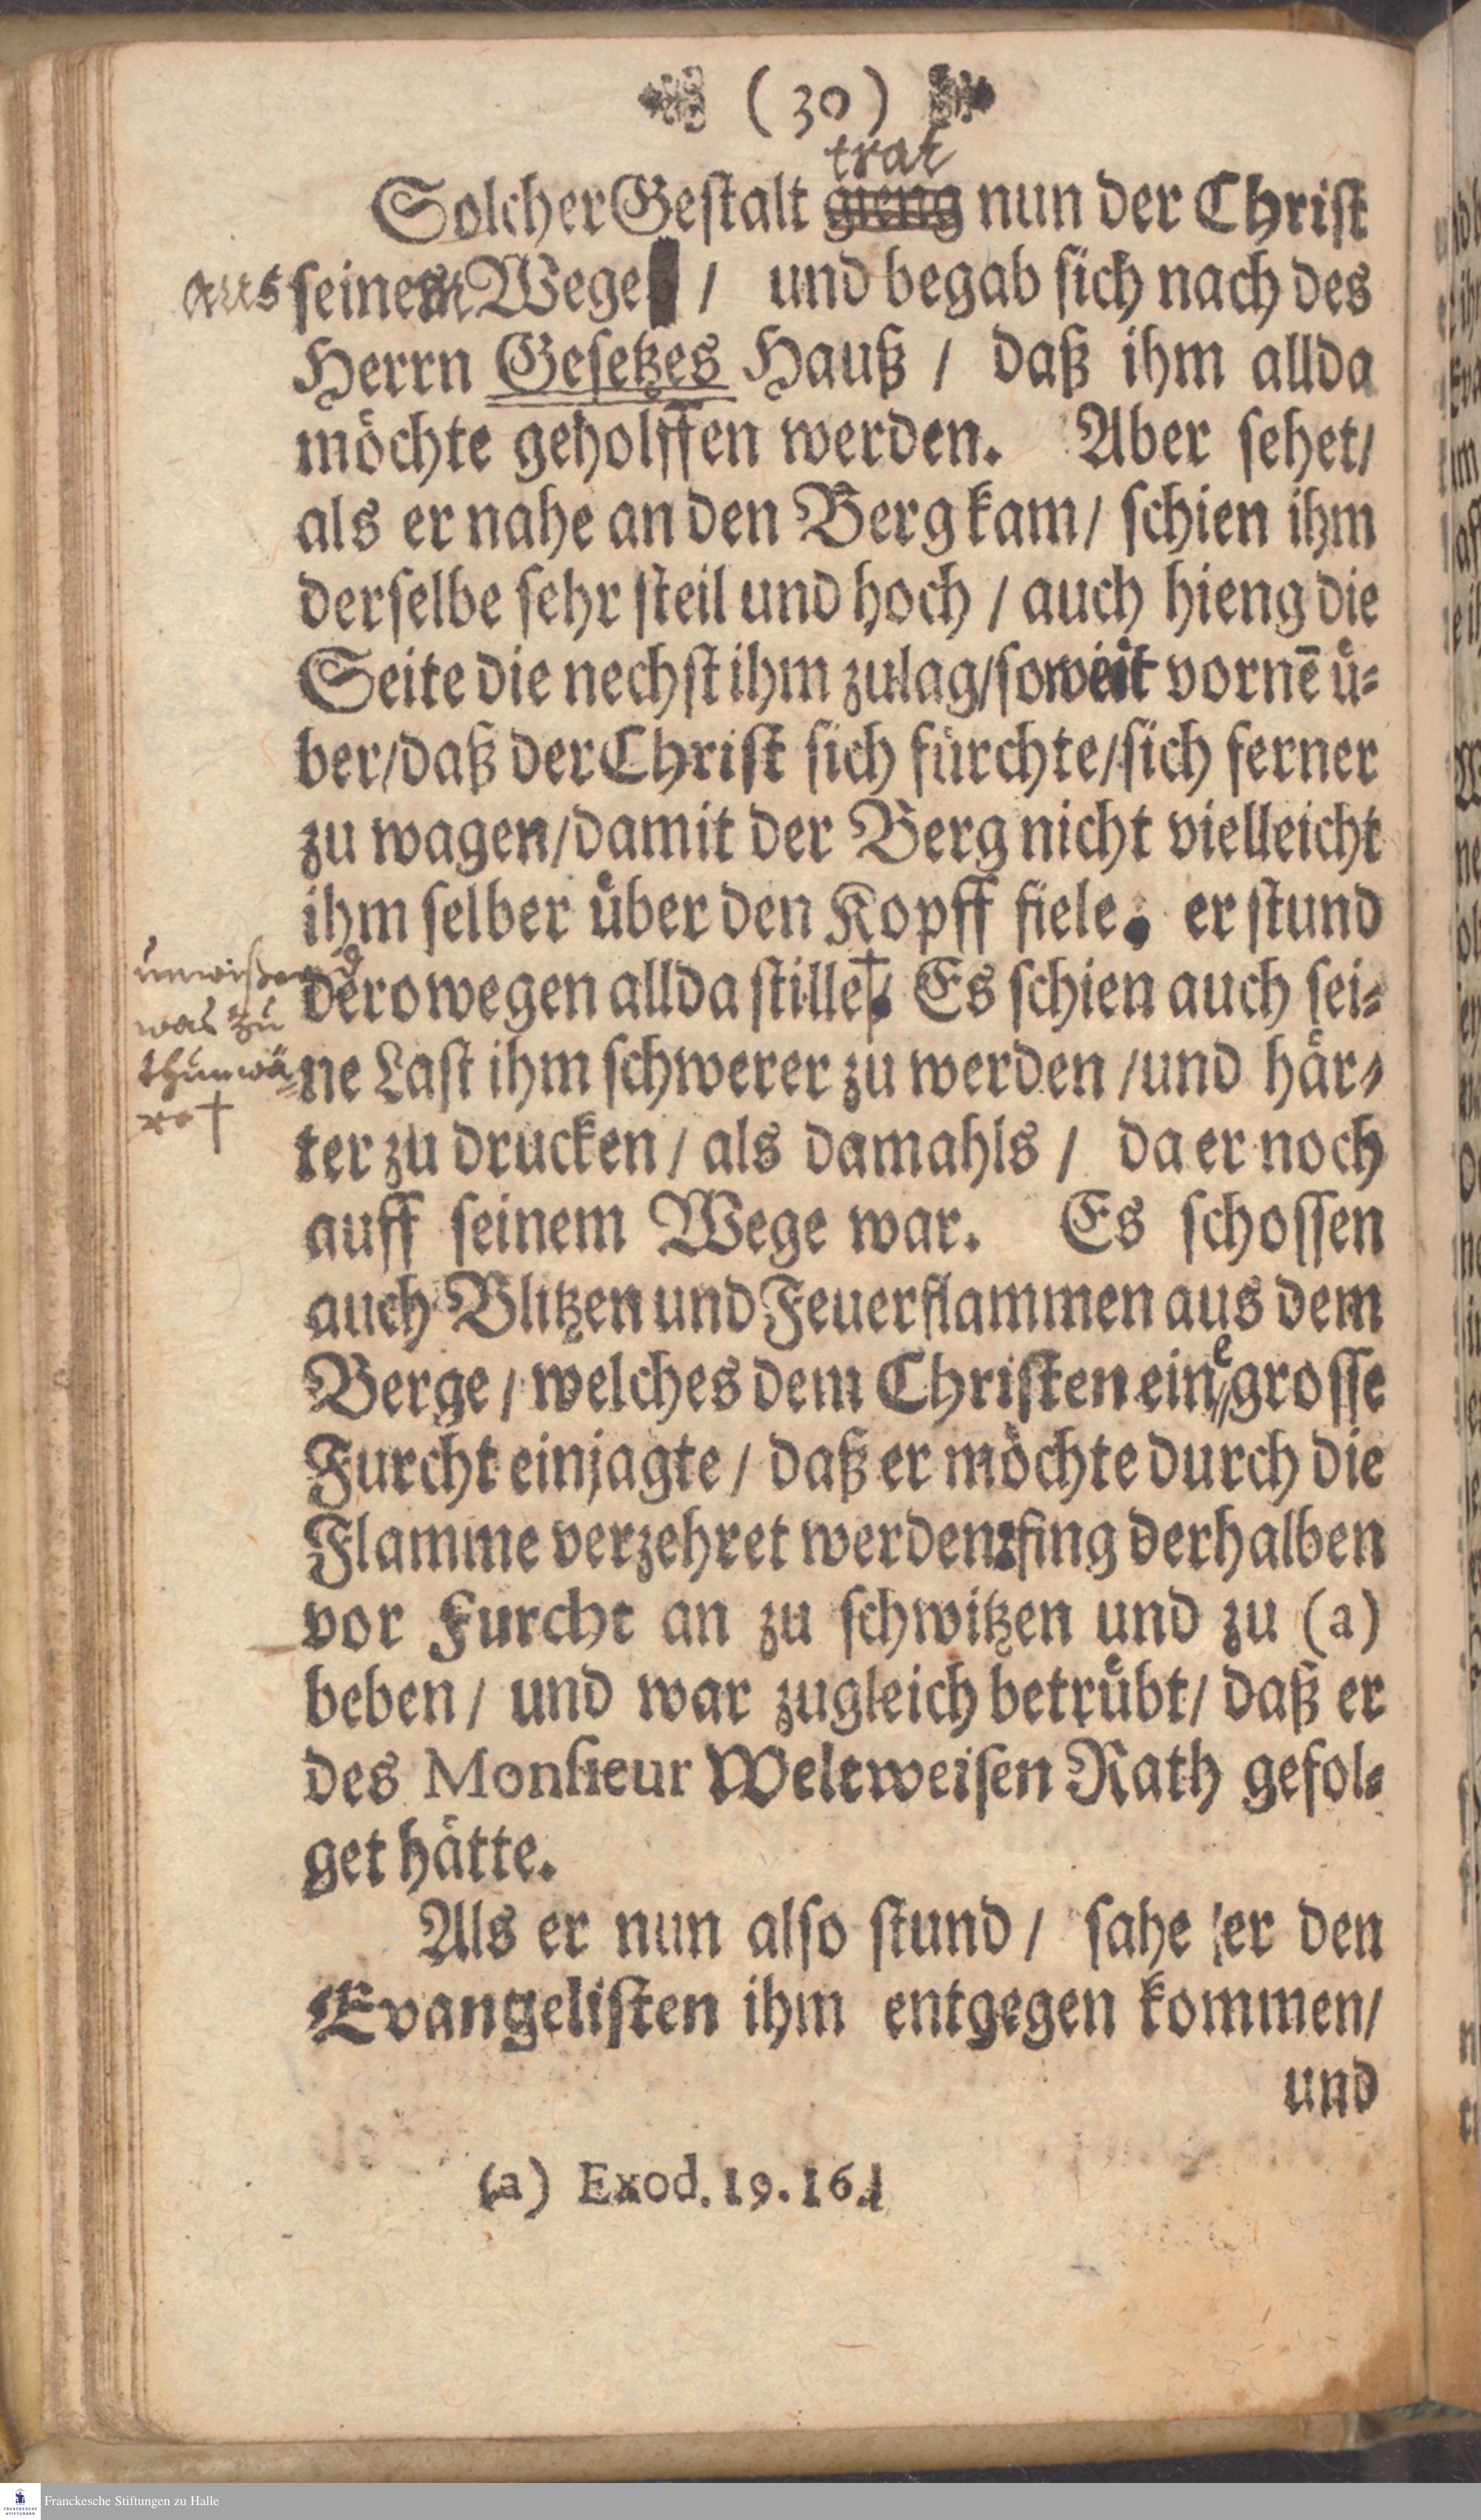 ( 30 )
trat
Solcher Gestalt gieng nun der Christ
aus seinem Wege / und begab sich nach des
Herrn Gesetzes Hauß / daß ihm allda
möchte geholffen werden. Aber sehet/
als er nahe an den Berg kam/ schien ihm
derselbe sehr steil und hoch / auch hieng die
Seite die nechst ihm zulag/so weit vornē ü-
ber/daß der Christ sich fürchte/sich ferner
zu wagen/damit der Berg nicht vielleicht
ihm selber über den Kopff fiele. er stund
derowegen allda stille†. Es schien auch sei-
unwißend
was zu
thun wä-
re †
ne Last ihm schwerer zu werden /und här-
ter zu drucken / als damahls / da er noch
auff seinem Wege war. Es schossen
auch Blitzen und Feuerflammen aus dem
Berge / welches dem Christen eine grosse
Furcht einjagte / daß er möchte durch die
Flamme verzehret werden: fing derhalben
vor Furcht an zu schwitzen und zu (a)
beben / und war zugleich betrübt/ daß er
des Monsieur Weltweisen Rath gefol-
get hätte.
Als er nun also stund / sahe er den
Evangelisten ihm entgegen kommen/
und
(a) Exod. 19. 16.
Franckesche Stiftungen zu Halle